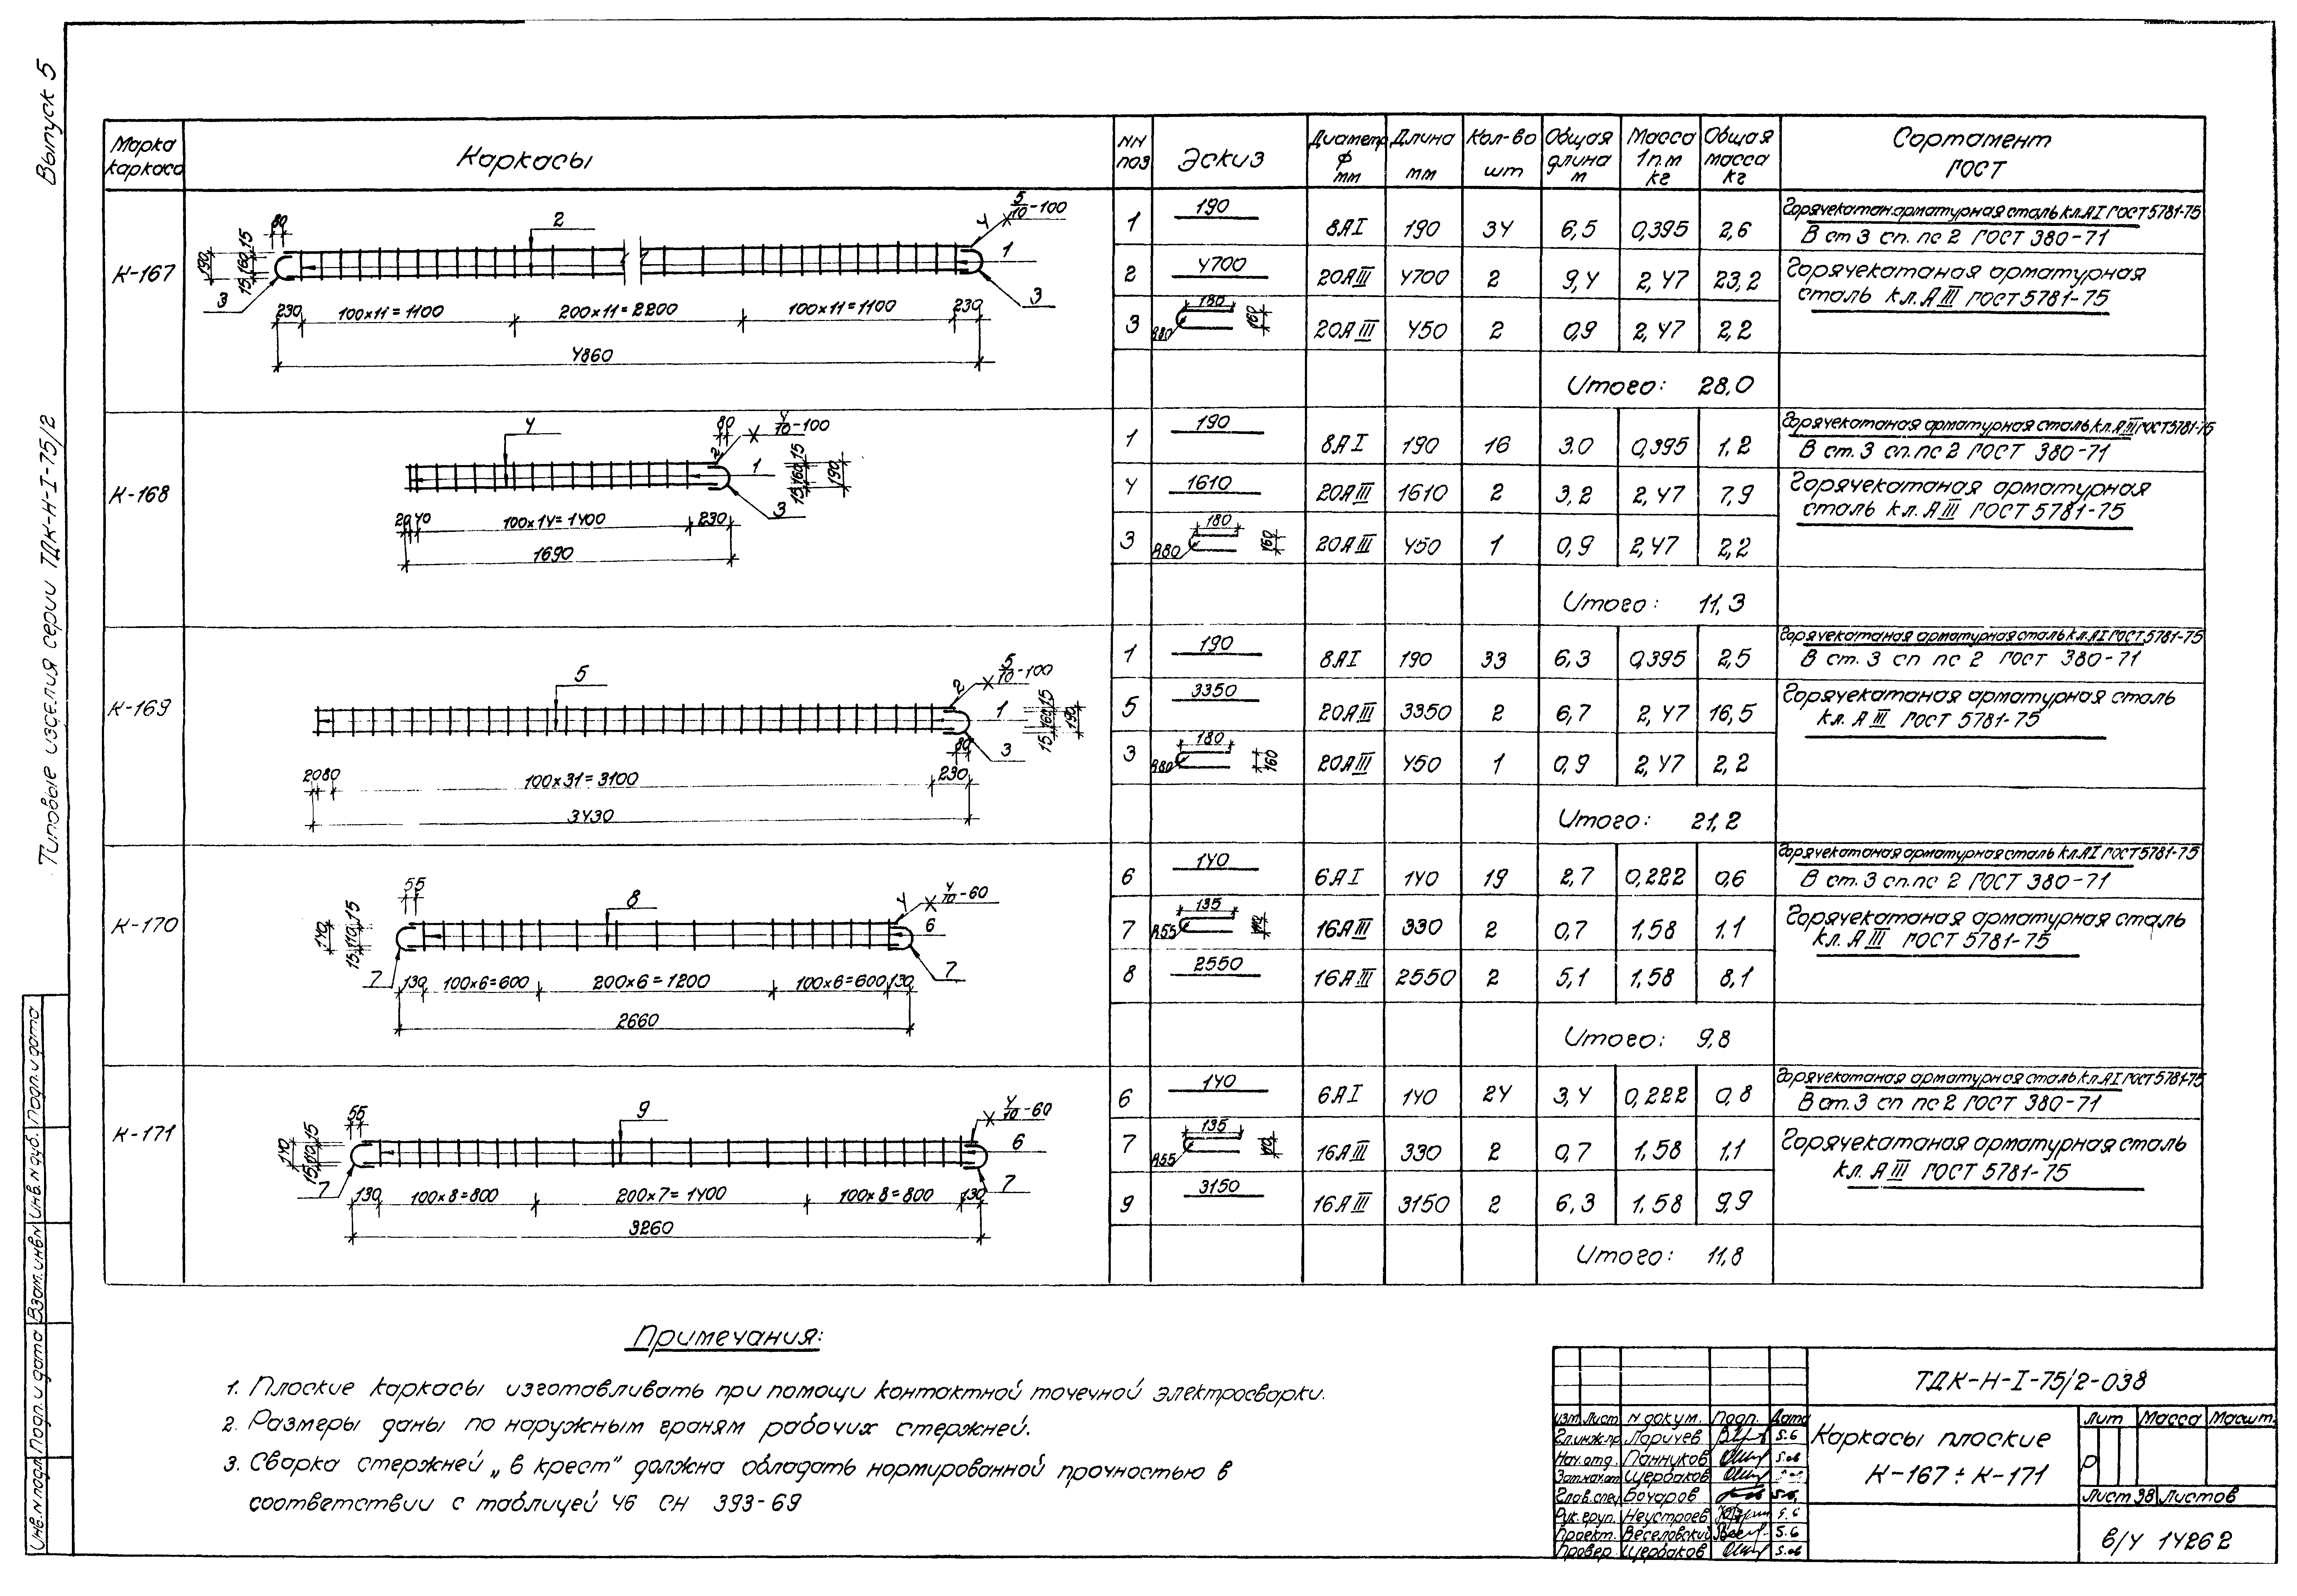 Выпуск 5
Типовые изделия серии ТДК-Н-I-75/2
Марка каркаса
Каркасы
NN поз
Эскиз
Диаметр ф мм
Длина мм
Кол-во шт
Общая длина м
Масса 1п.м кг
Общая масса кг
Сортамент ГОСТ
К-167
80
2
4
5/10-100
190
15 160 15
1
3
3
230
100х11=1100
200х11=2200
100х11=1100
230
4860
1 190 8АI 190 34 6,5 0,395 2,6
Горячекатан.арматурная сталь кл.АI ГОСТ 5781-75
В ст 3 сп. пс 2 ГОСТ 380-71
2 4700 20АIII 4700 2 9,4 2,47 23,2
Горячекатаная арматурная
сталь кл. АIII ГОСТ 5781-75
3 180 R80 160 20АIII 450 2 0,9 2,47 2,2
Итого: 28,0
К-168
4
80
4/10-100
2
1
15 160 15
190
3
20 40
100х14=1400
230
1690
1 190 8АI 190 16 3.0 0,395 1,2
Горячекатаная арматурная сталь кл.АIII ГОСТ 5781-75
В ст. 3 сп. пс 2 ГОСТ 380-71
4 1610 20АIII 1610 2 3,2 2,47 7,9
Горячекатаная арматурная
сталь кл. АIII ГОСТ 5781-75
3 180 R80 160 20АIII 450 1 0,9 2,47 2,2
Итого: 11,3
К-169
5
2
5/10-100
1
15 160 15
190
80
3
20 80
100х31=3100
230
3430
1 190 8АI 190 33 6,3 0,395 2,5
Горячекатаная арматурная сталь кл.АI ГОСТ 5781-75
В ст. 3 сп пс 2 ГОСТ 380-71
5 3350 20АIII 3350 2 6,7 2,47 16,5
Горячекатаная арматурная сталь
кл. АIII ГОСТ 5781-75
3 180 R80 160 20АIII 450 1 0,9 2,47 2,2
Итого: 21,2
К-170
55
8
4
4/10-60
140
15 110 15
6
7
7
130
100х6=600
200х6=1200
100х6=600
130
2660
6 140 6АI 140 19 2,7 0,222 0,6
Горячекатаная арматурная сталь кл.АI ГОСТ 5781-75
В ст. 3 сп.пс 2 ГОСТ 380-71
7 135 R55 110 16АIII 330 2 0,7 1,58 1.1
Горячекатаная арматурная сталь
кл. АIII ГОСТ 5781-75
8 2550 16АIII 2550 2 5,1 1,58 8,1
Итого: 9,8
К-171
55
9
4/10-60
140
15 110 15
6
7
7
130
100х8=800
200х7=1400
100х8=800
130
3260
6 140 6АI 140 24 3,4 0,222 0,8
Горячекатаная арматурная сталь кл.АI ГОСТ 5781-75
В ст. 3 сп пс 2 ГОСТ 380-71
7 135 R55 110 16АIII 330 2 0,7 1,58 1,1
Горячекатаная арматурная сталь
кл. АIII ГОСТ 5781-75
9 3150 16АIII 3150 2 6,3 1.58 9,9
Итого: 11,8
Примечания:
1. Плоские каркасы изготавливать при помощи контактной точечной электросварки.
2. Размеры даны по наружным граням рабочих стержней.
3. Сварка стержней „в крест" должна обладать нормированной прочностью в
соответствии с таблицей 46 СН 393-69
Инв.N подл. Подп. и дата Взам.инв.N Инв.N дуб. Подп. и дата
ТДК-Н-I-75/2-038
изм Лист N докум. Подп. Дата
Гл.инж.пр Ларичев 5.6
Нач.отд. Паннуков 5.06
Зам.нач.от Щербаков
Глав.спец Бочаров 5.6.
Рук.груп. Неустроев 5.6
Проект. Веселовский 5.6
Провер Щербаков 5.06
Каркасы плоские
К-167 ÷ К-171
Лит Масса Масшт.
Р
Лист 38 Листов
в/ч 14262